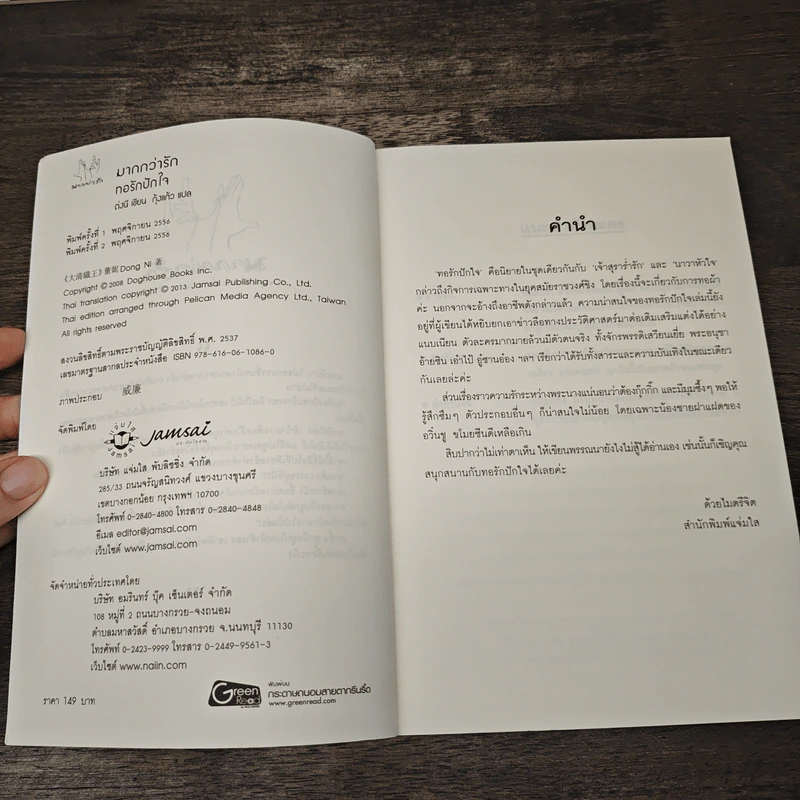 มากกว่ารัก
มากกว่ารัก
ทอรักปักใจ
ต่งนี เขียน กุ้งแก้ว แปล
พิมพ์ครั้งที่ 1 พฤศจิกายน 2556
พิมพ์ครั้งที่ 2 พฤศจิกายน 2556
《大清織王》董妮 Dong Ni 著
Copyright © 2008 Doghouse Books Inc.
Thai translation copyright © 2013 Jamsai Publishing Co., Ltd.
Thai edition arranged through Pelican Media Agency Ltd., Taiwan
All rights reserved
สงวนลิขสิทธิ์ตามพระราชบัญญัติลิขสิทธิ์ พ.ศ. 2537
เลขมาตรฐานสากลประจำหนังสือ ISBN 978-616-06-1086-0
ภาพประกอบ 威廉
จัดพิมพ์โดย
แจ่มใส jamsai
Jamsai
บริษัท แจ่มใส พับลิชชิ่ง จำกัด
285/33 ถนนจรัญสนิทวงศ์ แขวงบางขุนศรี
เขตบางกอกน้อย กรุงเทพฯ 10700
โทรศัพท์ 0-2840-4800 โทรสาร 0-2840-4848
อีเมล editor@jamsai.com
เว็บไซต์ www.jamsai.com
จัดจำหน่ายทั่วประเทศโดย
บริษัท อมรินทร์ บุ๊ค เซ็นเตอร์ จำกัด
108 หมู่ที่ 2 ถนนบางกรวย-จงถนอม
ตำบลมหาสวัสดิ์ อำเภอบางกรวย จ.นนทบุรี 11130
โทรศัพท์ 0-2423-9999 โทรสาร 0-2449-9561-3
เว็บไซต์ www.naiin.com
ราคา 149 บาท
Green Read
พิมพ์บน
กระดาษถนอมสายตากรีนรี้ด
www.greenread.com
คำนำ
'ทอรักปักใจ' คือนิยายในชุดเดียวกันกับ 'เจ้าสุราร่ำรัก' และ 'นาวาหัวใจ'
กล่าวถึงกิจการเฉพาะทางในยุคสมัยราชวงศ์ชิง โดยเรื่องนี้จะเกี่ยวกับการทอผ้า
ค่ะ นอกจากจะอ้างถึงอาชีพดังกล่าวแล้ว ความน่าสนใจของทอรักปักใจเล่มนี้ยัง
อยู่ที่ผู้เขียนได้หยิบยกเอาข่าวลือทางประวัติศาสตร์มาต่อเติมเสริมแต่งได้อย่าง
แนบเนียน ตัวละครมากมายล้วนมีตัวตนจริง ทั้งจักรพรรดิเสวียนเยี่ย พระอนุชา
อ้ายซิน เอ๋าไป้ อู๋ซานอ๋อง ฯลฯ เรียกว่าได้รับทั้งสาระและความบันเทิงในขณะเดียว
กันเลยล่ะค่ะ
ส่วนเรื่องราวความรักระหว่างพระนางแน่นอนว่าต้องกุ๊กกิ๊ก และมีมุมซึ้งๆ พอให้
รู้สึกซึมๆ ตัวประกอบอื่นๆ ก็น่าสนใจไม่น้อย โดยเฉพาะน้องชายฝาแฝดของ
อวิ๋นซู ขโมยซีนดีเหลือเกิน
สิบปากว่าไม่เท่าตาเห็น ให้เขียนพรรณนายังไงไม่สู้ได้อ่านเอง เช่นนั้นก็เชิญคุณ
สนุกสนานกับทอรักปักใจได้เลยค่ะ
ด้วยไมตรีจิต
สำนักพิมพ์แจ่มใส